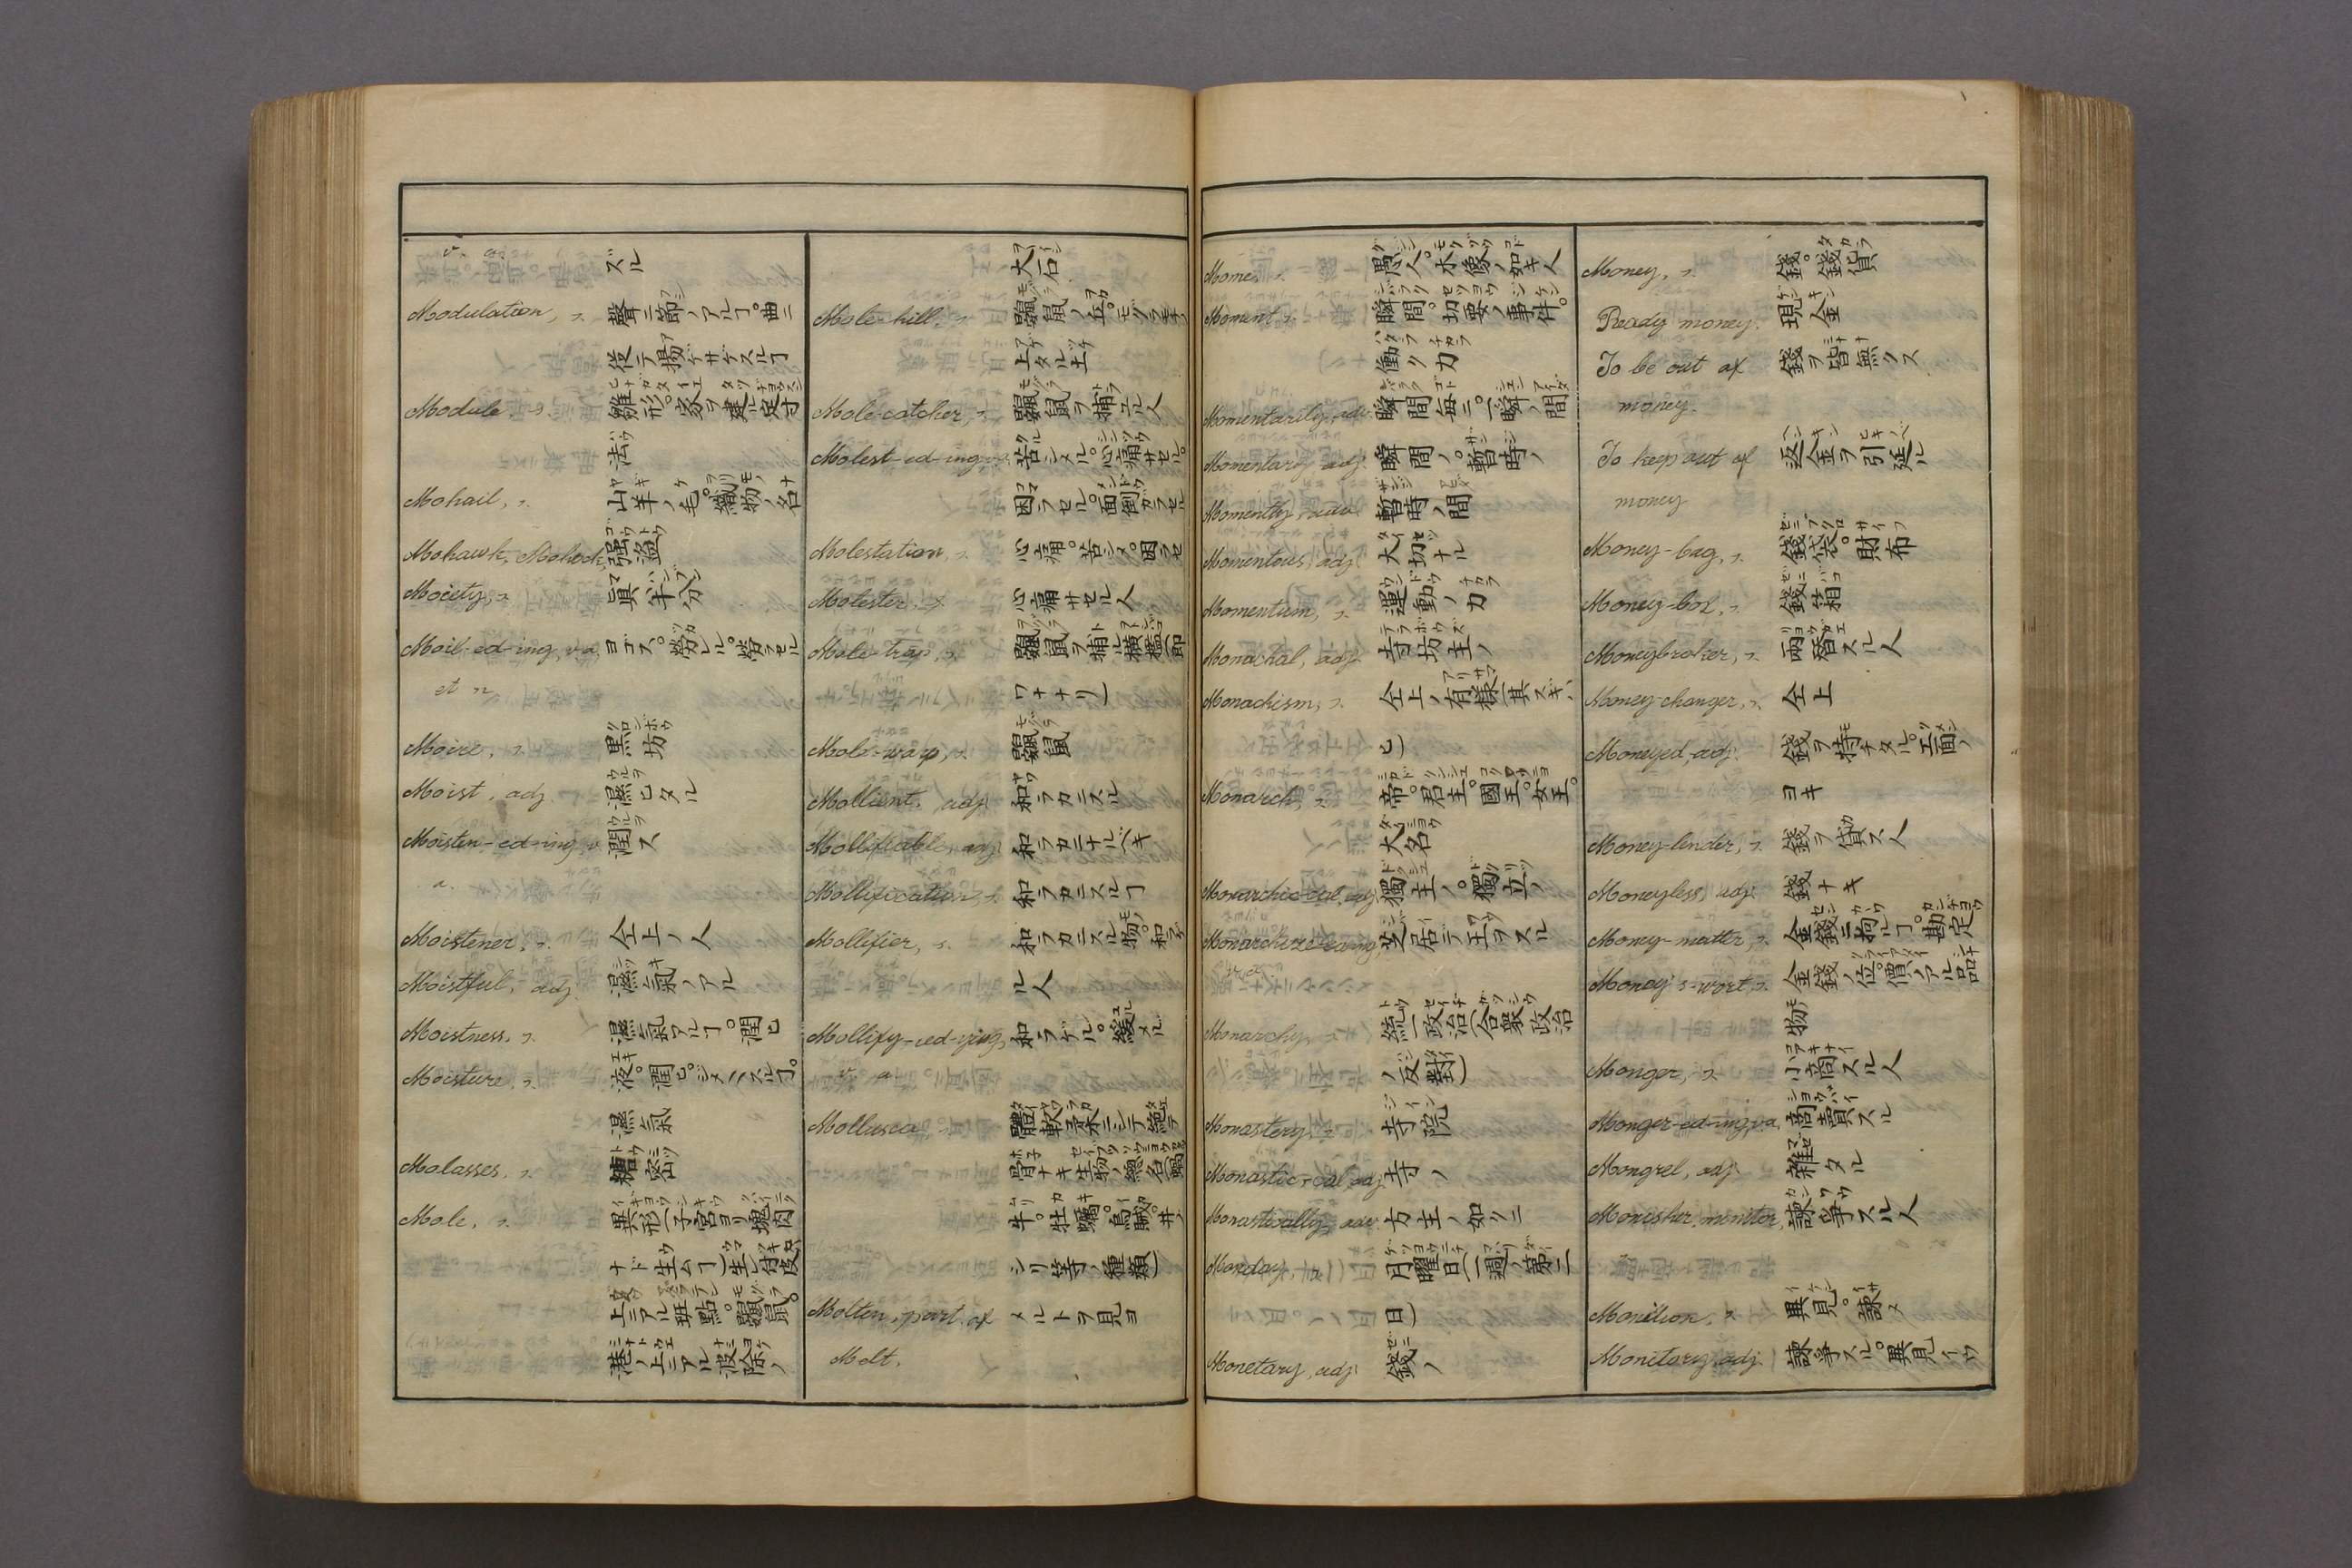 v. a. ズル
Modulation, n. 聲ニ節ノアルヿ。曲ニ
従テ揚ゲサゲスルヿ
Module, n. 雛形。家ヲ建ル定寸
法
Mohail, n. 山羊ノ毛。織物ノ名
Mohawk, Mohock, 強盗
Moiety, n. 眞半分
Moil-ed-ing, v. a. ヨゴス。勞レル。勞ラセル
et n.
Moire, n. 黒坊
Moist, adj. 濕ヒタル
Moisten-ed-ing, v. 潤ス
a.
Moistener, n. 仝上ノ人
Moistful, adj. 濕氣ノアル
Moistness, n. 濕氣アルヿ。潤ヒ
Moisture, n. 液。潤ヒ。シメハスルヿ。
濕氣
Molasses, n. 糖蜜
Mole, n. 異形(子宮ヨリ塊肉
ナド生ムヿ)生レ付皮
上ニアル班點。鼴鼠。
港ノ上ニアル波除ノ
大石
Mole-hill, n. 鼴鼠ノ丘。モグラモチノ
上タル土
Mole-catcher, n. 鼴鼠ヲ捕ル人
Molest-ed-ing, v. a. 苦シメル。心痛サセル。
困ラセル。面倒ガラセル
Molestation, n. 心痛。苦シメ。困ラセ
Molester, n. 心痛サセル人
Mole-trap, n. 鼴鼠ヲ捕ル横檻(即
ワナナリ)
Mole-warp, n. 鼴鼠
Mollient, adj. 和ラカニスル
Mollifiable, adj. 和ラカニナルベキ
Mollification, n. 和ラカニスルヿ
Mollifier, n. 和ラカニスル物。和ラゲ
ル人
Mollify-ied-ying, 和ラゲル。緩メル
v. a.
Mollusca, n. 體軟柔ニシテ絶テ
骨ナキ生物ノ總名(蝸
牛。牡蠣。烏賊。井ノ
シリ等ノ種類)
Molten, part. of メルトヲ見ヨ
Melt.
Mome, n. 愚人。木像ノ如キ人
Moment, n. 瞬間。切要ノ事件。
働ク力
Momentarily, adv. 瞬間毎ニ。一瞬ノ間
Momentary, adj. 瞬間ノ。暫時ノ
Momently, adv. 暫時ノ間
Momentous, adj. 大切ナル
Momentum, n. 運動ノ力
Monachal, adj. 寺坊主ノ
Monachism, n. 仝上ノ有様(其スギハ
ヒ)
Monarch, n. 帝。君主。國王。女王。
大名
Monarchic-cal, adj. 獨主ノ。獨立ノ
Monarchize-ed-ing, 芝居デ王ヲスル
Monarchy, n. 統一政治(合衆政治
ノ反對)
Monastery, n. 寺院
Monastic-cal, adj. 寺ノ
Monastically, adv. 方主ノ如クニ
Monday, n. 月曜日(一週ノ第二
日)
Monetary, adj. 錢ノ
Money, n. 錢。錢貨
Ready money. 現金
To be out of 錢ヲ皆無クス
money.
To keep out of 返金ヲ引延ル
money
Money-bag, n. 錢袋。財布
Money-box, n. 錢箱
Moneybroker, n. 兩替スル人
Money-changer, n. 仝上
Moneyed, adj. 錢ヲ持チタル。工面ノ
ヨキ
Money-lender, n. 錢ヲ貸ス人
Moneyless, adj. 錢ナキ
Money-matter, n. 金錢ニ拘ルヿ。勘定
Money's-wort, n. 金錢ノ位。價ノアル品
物
Monger, n. 小商スル人
Monger-ed-ing, v. a. 商賣スル
Mongrel, adj. 雜タル
Monisher, monitor, 諫爭スル人
Monition, n. 異見。諫メ
Monitory, adj. 諫爭スル。異見イウ